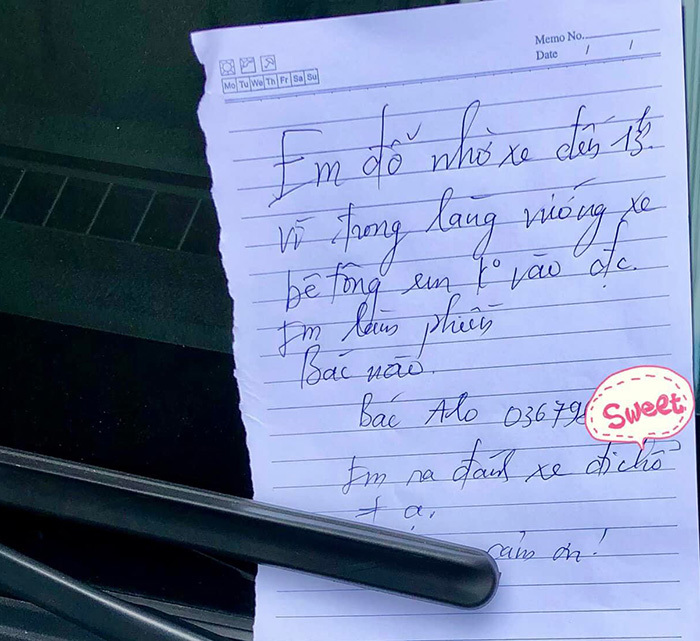 Memo No.
Date / /
Mo Tu We Th Fr Sa Su
Em đỗ nhờ xe đến 13h.
vì trong làng vướng xe
bê tông em k° vào đc.
Em làm phiền
Bác nào.
Bác Alo 03679
Sweet
Em ra đánh xe đi chỗ
≠ ạ.
cảm ơn!